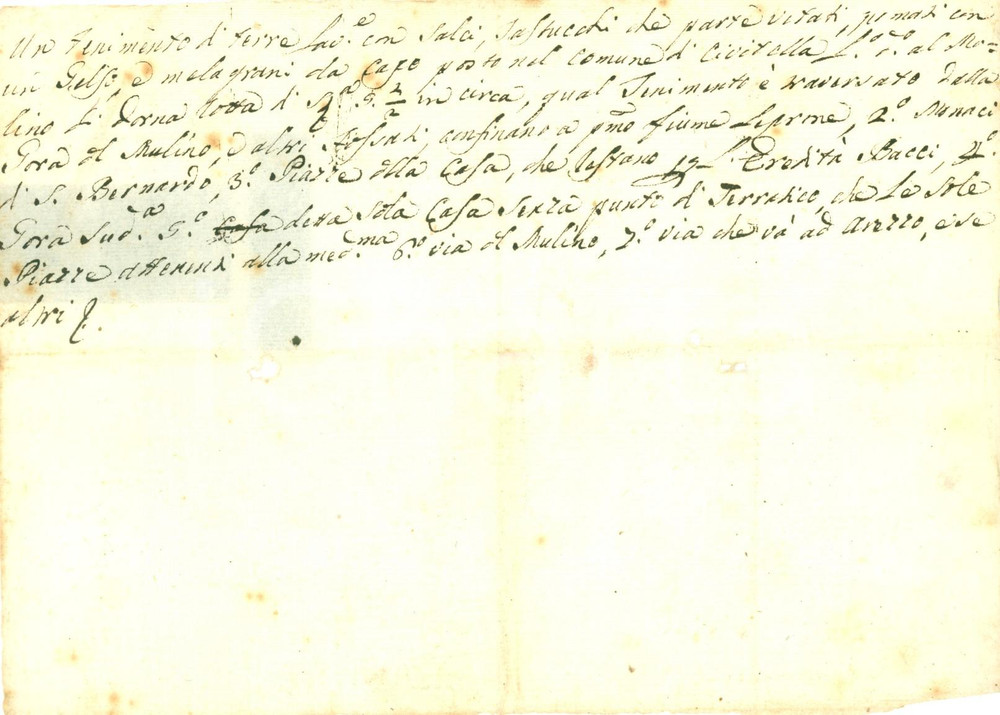 Un Tenimento di terre Lav.e con Salci, che parte vitati, pomati con
un Gelso, e melagrani da Capo posto nel Comune di Civitella L.o d.o al Mo=
lino di in circa, qual Tenimento è traversato dalla
Gora del Mulino, e altri Fossati, confinano a pmo fiume Leprone, 2.o Monaci
di S. Bernardo, 3.o Piazze della Casa, che restano Eredità Bacci, 4.o
Gora Sud.a 5.o Casa detta sola Casa senza punto di Terratico, che le sole
Piazze attenenti alla med.ma 6.o via del Mulino, 7.o via che và ad Arezzo, e se
altri